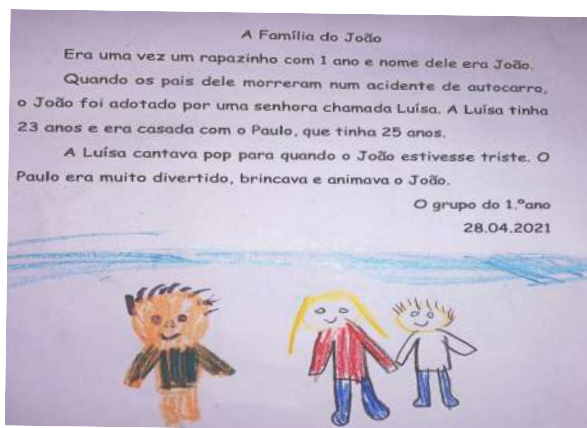 A Família do João
Era uma vez um rapazinho com 1 ano e nome dele era João.
Quando os pais dele morreram num acidente de autocarro,
o João foi adotado por uma senhora chamada Luísa. A Luísa tinha
23 anos e era casada com o Paulo, que tinha 25 anos.
A Luísa cantava pop para quando o João estivesse triste. O
Paulo era muito divertido, brincava e animava o João.
O grupo do 1.ºano
28.04.2021